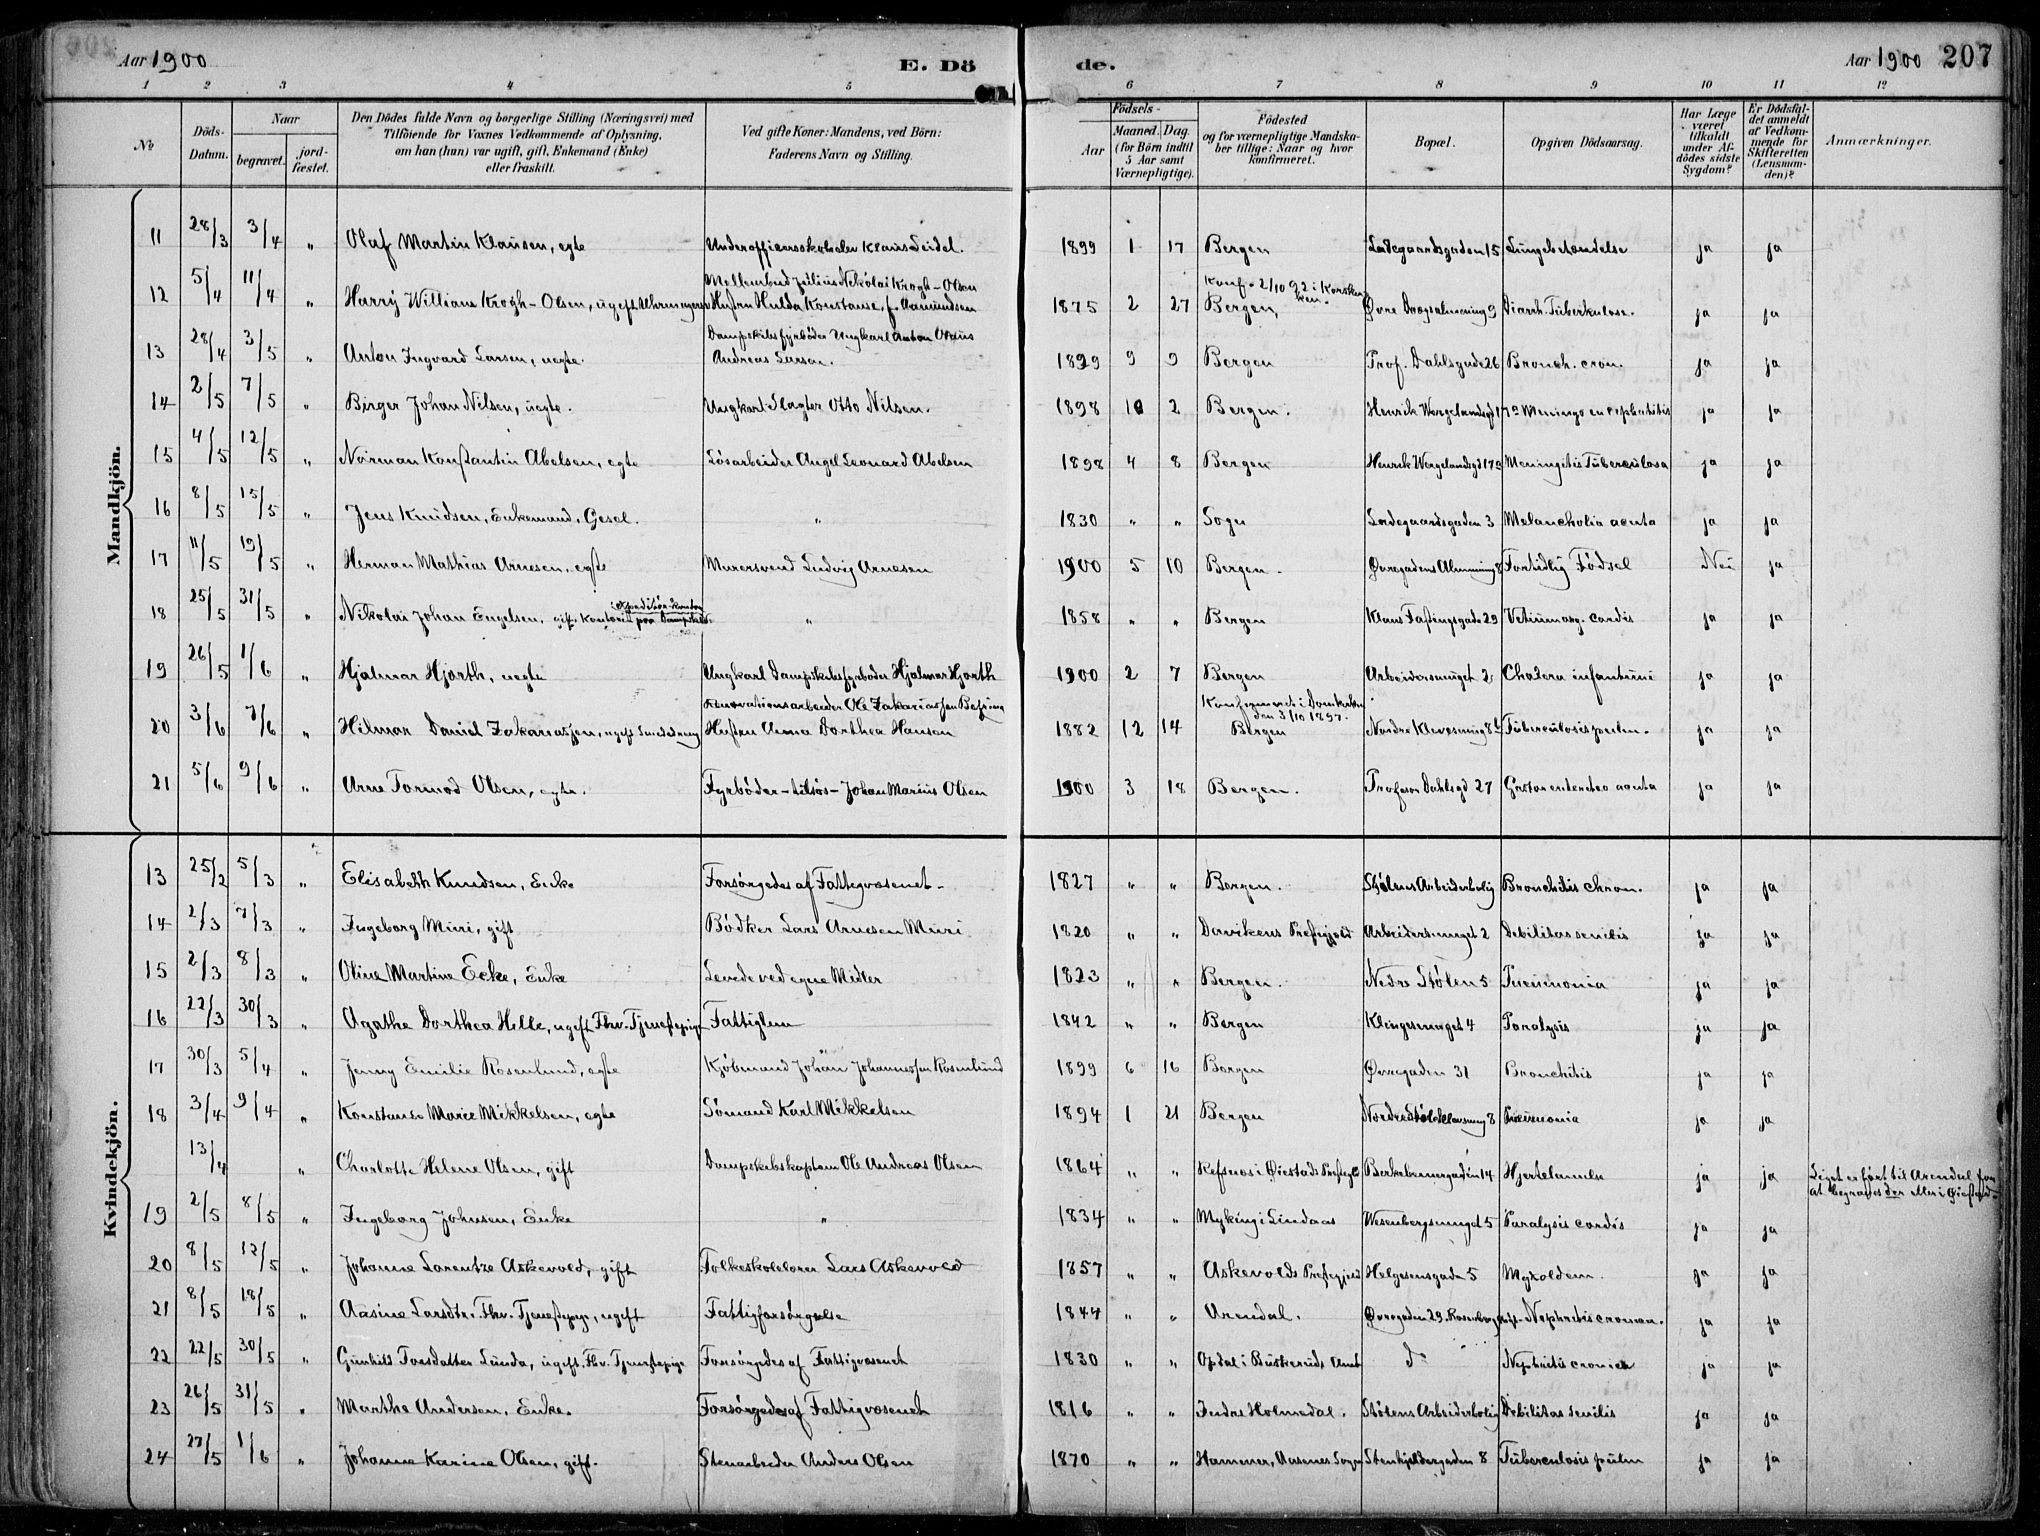 Aar 1900
E. Dö
de.
Aar 1900 207
1 2 3 4 5 6 7 8 9 10 11 12
No
Döds-Datum.
Naar
begravet.
jord-fæstet.
Den Dödes fulde Navn og borgerlige Stilling (Næringsvei) med
Tilföiende for Voxnes Vedkommende af Oplysning,
om han (hun) var ugift, gift, Enkemand (Enke)
eller fraskilt.
Ved gifte Koner: Mandens, ved Börn:
Faderens Navn og Stilling.
Födsels-
Aar
Maaned. Dag.
(for Börn indtil
5 Aar samt
Værnepligtige).
Födested
og for værnepligtige Mandska-
ber tillige: Naar og hvor
konfirmeret.
Bopæl.
Opgiven Dödsaarsag.
Har Læge
været
tilkaldt
under Af-
dödes sidste
Sygdom?
Er Dödsfal-
det anmeldt
af Vedkom-
mende for
Skifteretten
(Lensman-
den)?
Anmærkninger.
Mandkjön.
11 28/3 3/4 " Olaf Martin Klausen, egte Underofficersskoleelev Klaus Leidel. 1899 1 17 Bergen Ladegaardsgaden 15 Lungebetændelse ja ja
Mellembud Julius Nikolai Krogh-Olsen Konf. 2/10 92 i Korskirken.
12 5/4 11/4 " Harry William Krogh-Olsen, ugift Hustru Hulda Konstanse, f. Aamundsen 1875 2 27 Bergen, Øvre Dragsalmening 9 Diarrh. Tuberkulose. ja ja
Dampskibsfyrbøder Ungkarl Anton
13 28/4 3/5 " Anton Ingvard Larsen, uegte. Andreas Larsen. 1899 9 9 Bergen Prof. Dahlsgade 26 Bronch. cron. ja ja
14 2/5 7/5 " Birger Johan Nilsen, uegte. Ungkarl Slagter Otto Nilsen. 1898 10 2 Bergen. Henrik Wergelandsgd 17a Meningo encephalitis ja ja
15 4/5 12/5 " Norman Konstantin Abelsen, egte Løsarbeider Angel Leonard Abelsen 1898 4 8 Bergen Henrik Wergelandsgd 17a Meningitis Tuberculosa ja ja
16 8/5 15/5 " Jens Knudsen, Enkemand, Gesel. " 1830 " " Sogn Ladegaardsgaden 3 Melancholia acuta ja ja
17 11/5 19/5 " Herman Mathias Arnesen, egte Murersvend Ludvig Arnesen 1900 5 10 Bergen. Øvregadens Almenning 8 Fortidlig Fødsel Nei ja
18 25/5 31/5 " Nikolai Johan Engelsen, gift, " 1858 " " Bergen Klaus Fastingsgade 29 cordis ja ja
19 26/5 1/6 " Hjalmar Hjorth, uegte Ungkarl Dampskibsfyrbøder Hjalmar Hjorth 1900 2 7 Bergen Arbeidersmuget 2 Cholera infantum ja ja
Renovationsarbeider Ole Zakariassen Konfirmeret i Domkirken
den 3/10 1897.
20 3/6 7/6 " Hilmar Daniel Zakariassen, ugift Hustru Anna Dorthea Hansen 1882 12 14 Bergen Nordre 8b Tuberculosis pulm. ja ja
21 5/6 9/6 " Arne Tormod Olsen, egte. Fyrbøder-tilsøs-Johan Marius Olsen 1900 3 18 Bergen. Professor Dahlsgd 27 acuta ja ja
Kvindekjön.
13 25/2 5/3 " Elisabeth Knudsen, Enke Forsørgedes af Fattigvæsenet 1827 " " Bergen. Stølens Arbeiderbolig Bronchitis chron. ja ja
14 2/3 7/3 " Ingeborg Muri, gift Bødker Lars Arnesen Muri 1820 " " Davikens Prestegjeld Arbeidersmuget 2 Debilitas senilis ja ja
15 2/3 8/3 " Oline Martine Ecke, Enke Levede ved egne Midler 1823 " " Bergen. Nedre Stølen 5 Pneumonia ja ja
16 22/3 30/3 " Agathe Dorthea Hille, ugift Fhv. Tjenestepige Fattiglem 1842 " " Bergen Klingesmuget 4 Paralysis ja ja
17 30/3 5/4 " Jenny Emilie Rosenlund, egte Kjøbmand Johan Johannessen Rosenlund 1899 6 16 Bergen Øvregaden 31 Bronchitis ja ja
18 3/4 9/4 " Konstanse Marie Mikkelsen, egte Sømand Karl Mikkelsen 1894 1 21 Bergen Nordre 8 Pneumonia ja ja
13/4 " Charlotte Helene Olsen, gift Dampskibskaptein Ole Andreas Olsen 1864 " " Refsnes i Øiestads Prestegjeld 14 Hjertelamelse ja ja Liget er ført til Arendal for
at begraves der eller i Øiestad
19 2/5 8/5 " Ingeborg Johnsen, Enke " 1834 " " Myking i Lindaas Wesenbergsmuget 5 Paralysis cordis ja ja
20 8/5 12/5 " Johanne Lorentze Askevold, gift Folkeskolelærer Lars Askevold 1857 " " Askevolds Prestegjeld Helgesensgaden 5 Myxoldem. ja ja
21 8/5 18/5 " Aasine Larsdtr. Fhv. Tjenestepige, ugift Fattigforsørgelse 1844 " " Arendal. Øvregaden 29. Nephritis cronica. ja ja
22 22/5 30/5 " Gunhild Torsdatter Lunda, ugift, Fhv. Tjenestepige Forsørgedes af Fattigvæsenet 1830 " " Opdal i Buskeruds Amt do Nephritis cronica ja ja
23 26/5 31/5 " Marthe Andersen, Enke. Forsørgedes af Fattigvæsenet 1816 " " Indre Holmedal. Stølens Arbeiderbolig Debilitas senilis ja ja
24 27/5 1/6 " Johanne Karine Olsen, gift. Stenarbeider Anders Olsen 1870 " " Hammer, Aasenes Sogn Stenkjeldergaden 8 Tuberculosis pulm ja ja